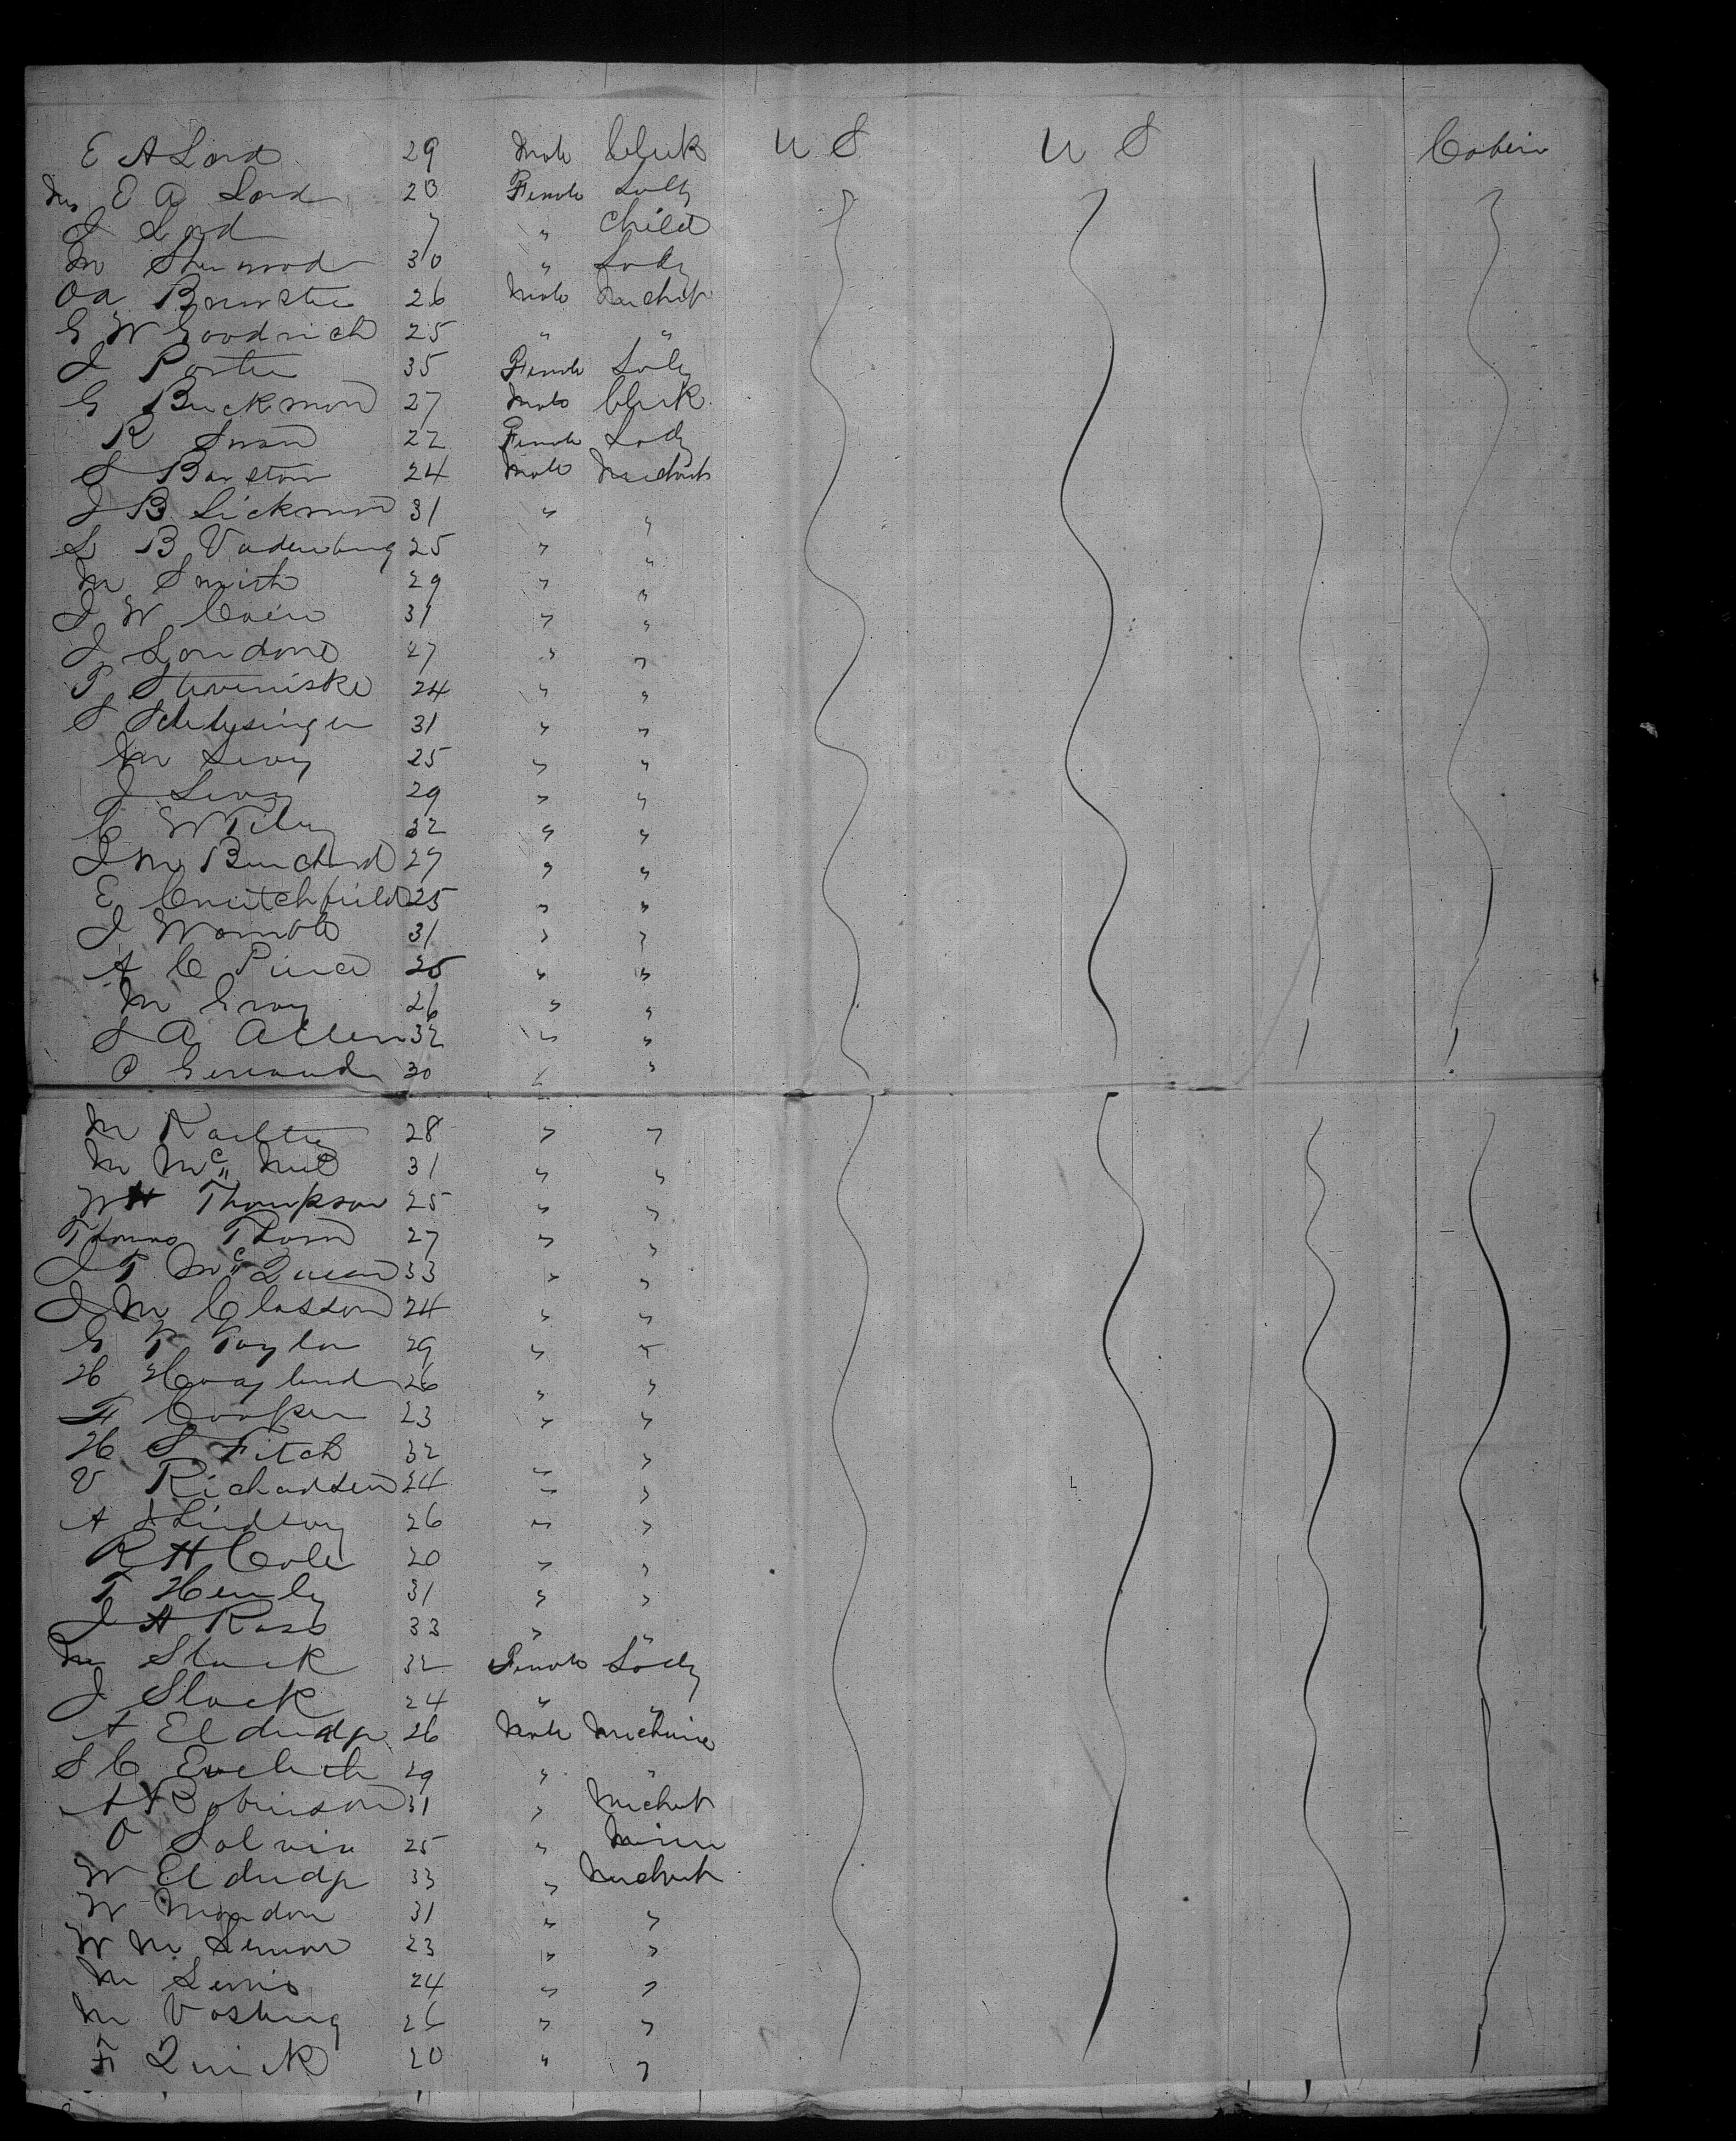 E A Lord 29 Male Clerk U S U S Cabin
Mrs E A Lord 23 Female Lady
J Lord 7 " Child
M Sherwood 30 " Lady
O A Brewster 26 Male Mercht
G W Goodrich 25 " "
J Porter 35 Female Lady
G Buckman 27 Male Clerk
R Swan 22 Female Lady
S Barstow 24 Male Merchnt
J B Sickman 31 " "
L B Vadenburg 25 " "
M Smith 29 " "
J W Coin 31 " "
J London 27 " "
P 24 " "
S Schlysinger 31 " "
M Levy 25 " "
J Levy 29 " "
C W Tily 32 " "
J M Burchard 27 " "
E Crutchfield 25 " "
J Womble 31 " "
A C Pierce 25 " "
M Gray 26 " "
S A Allen 32 " "
P 30 " "
M 28 " "
M Mc Neil 31 " "
W H Thompson 25 " "
Thomas Thorn 27 " "
J T Mc Quean 33 " "
J M Classon 24 " "
G T Taylor 29 " "
H Hoagland 26 " "
F Cooper 23 " "
H S Fitch 32 " "
V Richardson 24 " "
A J Lindsay 26 " "
R H Cole 20 " "
T Henly 31 " "
J A Ross 33 " "
M Slack 32 Female Lady
J Slack 24 " "
A Eldridge 26 Male Mechanic
S C Eveleth 29 " "
A A Robinson 31 " Mercht
O Salvin 25 " Miner
W Eldridge 33 " Merchnt
W 31 " "
W M Senior 23 " "
M Lewis 24 " "
M Vosburg 26 " "
F Quirk 20 " "